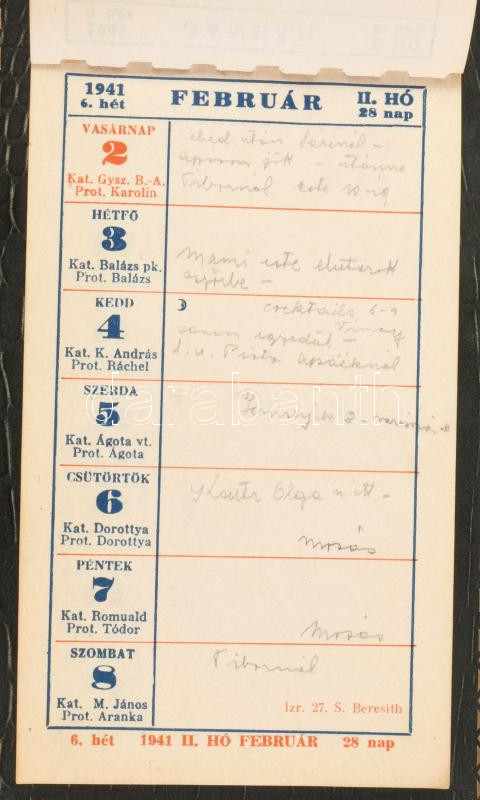 1941
6. hét
FEBRUÁR
II. HÓ
28 nap
VASÁRNAP
2
Kat. Gysz. B.-A.
Prot. Karolin
ebéd után
este 10-ig
HÉTFŐ
3
Kat. Balázs pk.
Prot. Balázs
Mami este elutazott
KEDD
4
Kat. K. András
Prot. Ráchel
cocktails 6-9
egyedül -
d. u.
SZERDA
5
Kat. Ágota vt.
Prot. Ágota
darabanth
CSÜTÖRTÖK
6
Kat. Dorottya
Prot. Dorottya
Olga
Mosás
PÉNTEK
7
Kat. Romuald
Prot. Tódor
Mosás
SZOMBAT
8
Kat. M. János
Prot. Aranka
Tibornál
Izr. 27. S. Beresith
6. hét 1941 II. HÓ FEBRUÁR 28 nap